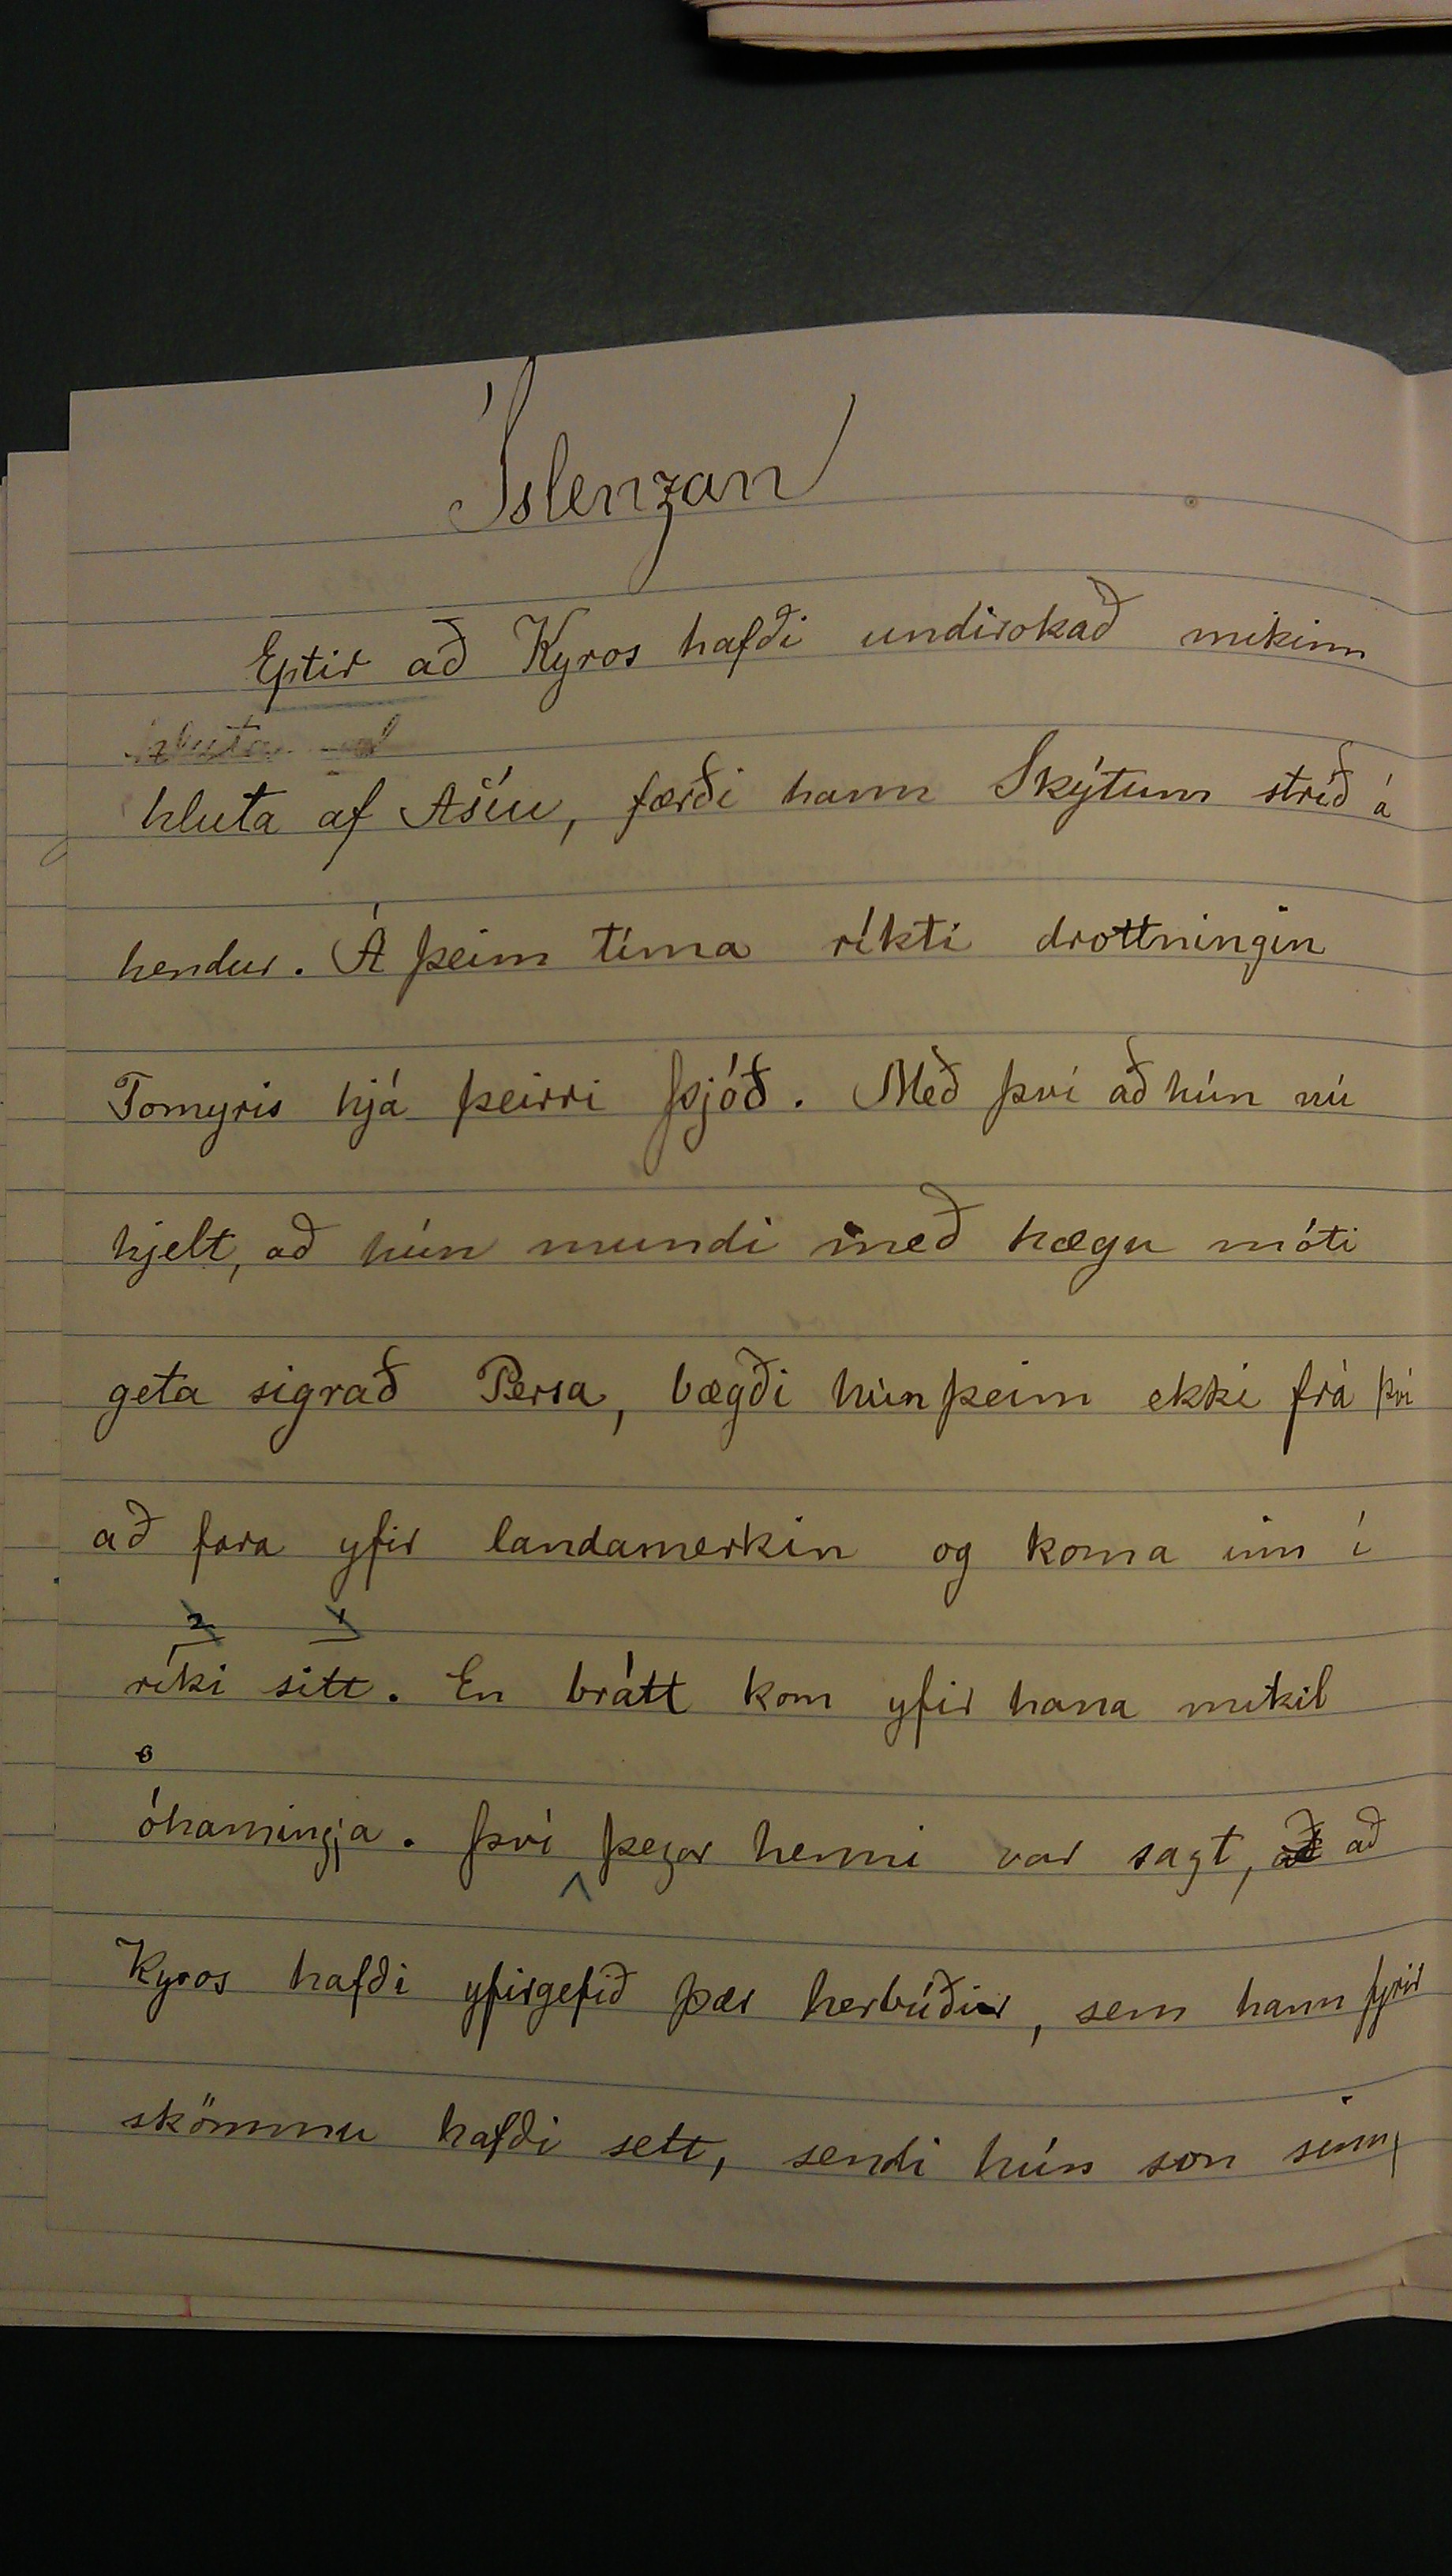 Íslenzan
Eptir að Kyros hafði undirokað mikinn
hluta af Asíu, færði hann Skýtum stríð á
hendur. Á þeim tíma ríkti drottningin
Tomyris hjá þeirri þjóð. Með því að hún nú
hjelt, að hún mundi með hægu móti
geta sigrað Persa, bægði hún þeim ekki frá því
að fara yfir landamerkin og koma inn í
2 1
ríki sitt. En brátt kom yfir hana mikil
óhamingja. Því þegar henni var sagt, að að
Kyros hafði yfirgefið þær herbúðir, sem hann fyrir
skömmu hafði sett, sendi hún son sinn,